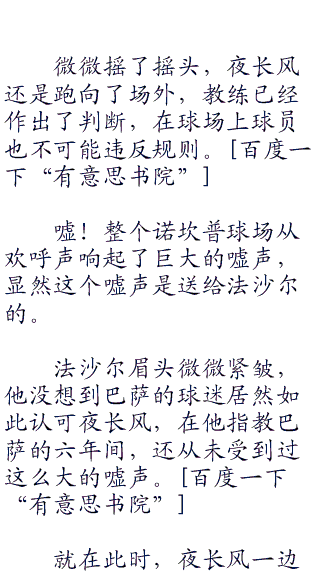 微微摇了摇头，夜长风
还是跑向了场外，教练已经
作出了判断，在球场上球员
也不可能违反规则。[百度一
下“有意思书院”]
嘘！整个诺坎普球场从
欢呼声响起了巨大的嘘声，
显然这个嘘声是送给法沙尔
的。
法沙尔眉头微微紧皱，
他没想到巴萨的球迷居然如
此认可夜长风，在他指教巴
萨的六年间，还从未受到过
这么大的嘘声。[百度一下
“有意思书院”]
就在此时，夜长风一边